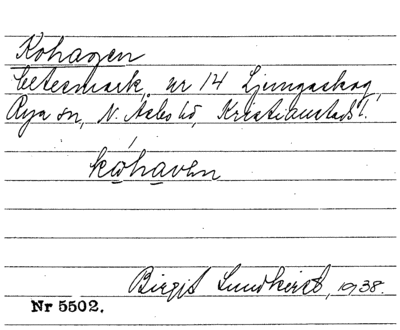 Kohagen
betesmark, nr 14 Ljungaskog,
Rya sn, N. Åsbo hd, Kristianstads l.
kóhaven
Birgit Lundkvist, 1938.
Nr 5502.